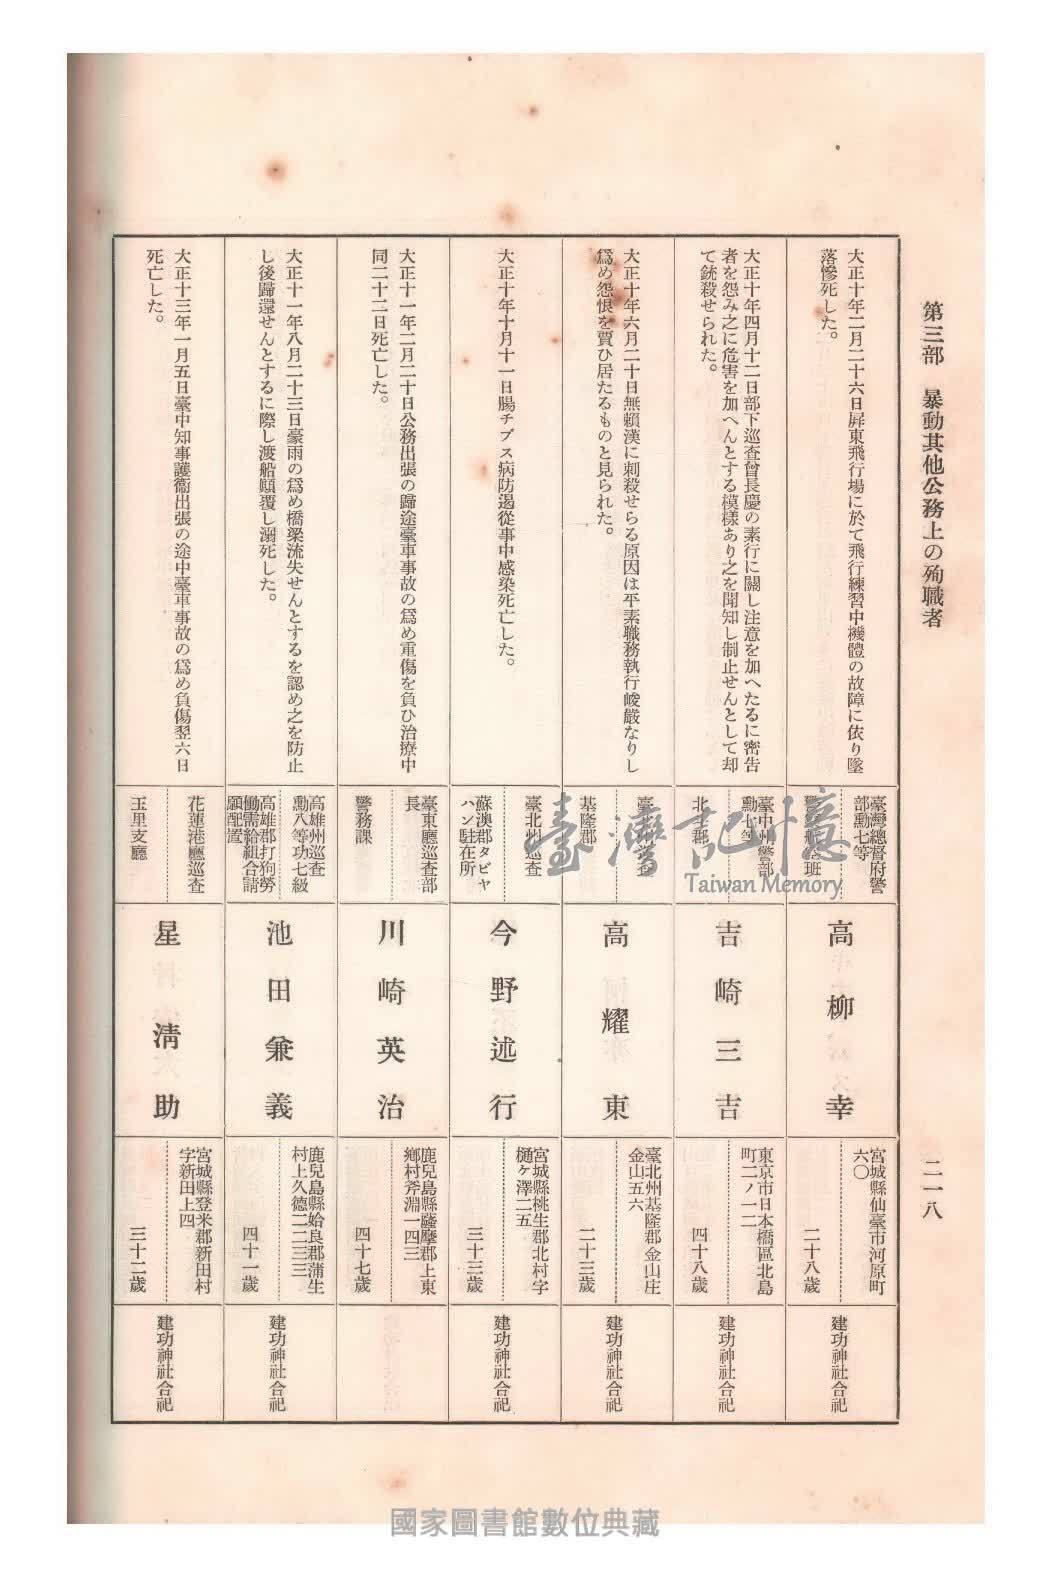 第三部　暴動其他公務上の殉職者
二一八
大正十年二月二十六日屏東飛行場に於て飛行練習中機體の故障に依り墜
落慘死した。
臺灣總督府警
部勳七等
警察航空班
高柳幸
宮城縣仙臺市河原町
六〇
二十八歲
建功神社合祀
大正十年四月十二日部下巡査曾長慶の素行に關し注意を加へたるに密告
者を怨み之に危害を加へんとする模樣あり之を聞知し制止せんとして却
て銃殺せられた。
臺中州警部
勳七等
北斗郡
吉崎三吉
東京市日本橋區北島
町二ノ一二
四十八歲
建功神社合祀
大正十年六月二十日無賴漢に刺殺せらる原因は平素職務執行峻嚴なりし
爲め怨恨を買ひ居たるものと見られた。
臺北州巡査
基隆郡
高耀東
臺北州基隆郡金山庄
金山五六
二十三歲
建功神社合祀
大正十年十月十一日腸チブス病防遏從事中感染死亡した。
臺北州巡査
蘇澳郡タビヤ
ハン駐在所
今野述行
宮城縣桃生郡北村字
樋ヶ澤二五
三十三歲
建功神社合祀
大正十一年二月二十日公務出張の歸途臺車事故の爲め重傷を負ひ治療中
同二十二日死亡した。
臺東廳巡査部
長
警務課
川崎英治
鹿兒島縣薩摩郡上東
鄉村斧淵一四三
四十七歲
大正十一年八月二十三日豪雨の爲め橋梁流失せんとするを認め之を防止
し後歸還せんとするに際し渡船顚覆し溺死した。
高雄州巡査
勳八等功七級
高雄郡打狗勞
働需給組合請
願配置
池田兼義
鹿兒島縣姶良郡蒲生
村上久德二二三三
四十一歲
建功神社合祀
大正十三年一月五日臺中知事護衞出張の途中臺車事故の爲め負傷翌六日
死亡した。
花蓮港廳巡査
玉里支廳
星淸助
宮城縣登米郡新田村
字新田上四
三十二歲
建功神社合祀
臺灣記憶
Taiwan Memory
國家圖書館數位典藏